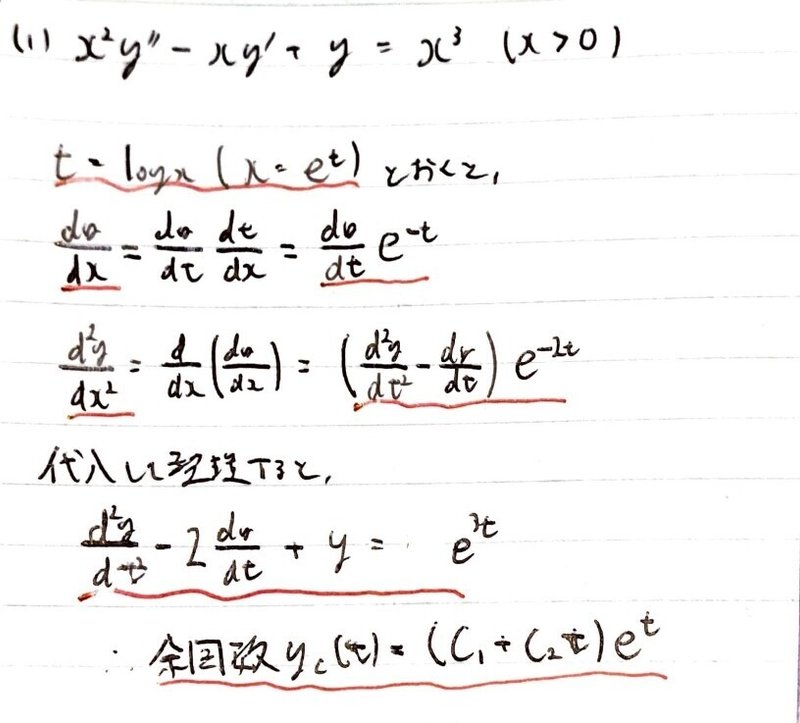 (1) x²y″ - xy′ + y = x³ (x > 0)
t = log x (x = eᵗ) とおくと,
dy/dx = dy/dt dt/dx = dy/dt e⁻ᵗ
d²y/dx² = d/dx (dy/dx) = (d²y/dt² - dy/dt) e⁻²ᵗ
代入して整理すると,
d²y/dt² - 2 dy/dt + y = e³ᵗ
∴ 余因数 y_c(t) = (C₁ + C₂t)eᵗ